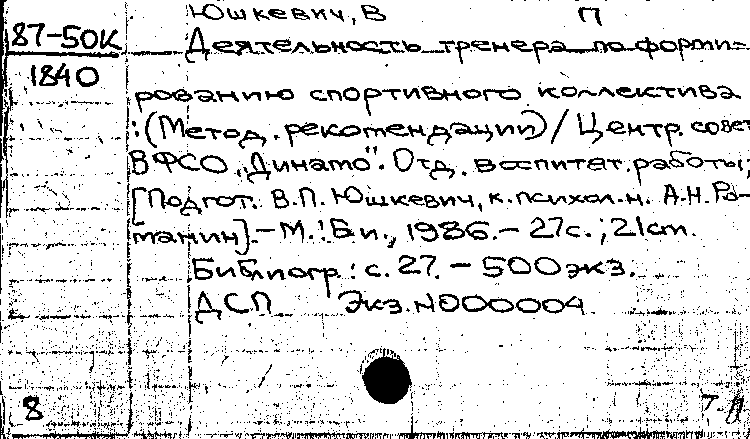 Юшкевич, В П
87-50К
Деятельность тренера по форми-
1840
рованию спортивного коллектива
: (Метод. рекомендации) / Центр. совет
ВФСО „Динамо". Отд. воспитат. работы;
[Подгот. В.П. Юшкевич, к. психол. н. А.Н. Ро-
манин]. – М. : Б.и., 1986. – 27с. ; 21см.
Библиогр.: с. 27. – 500 экз.
ДСП Экз. N000004
8